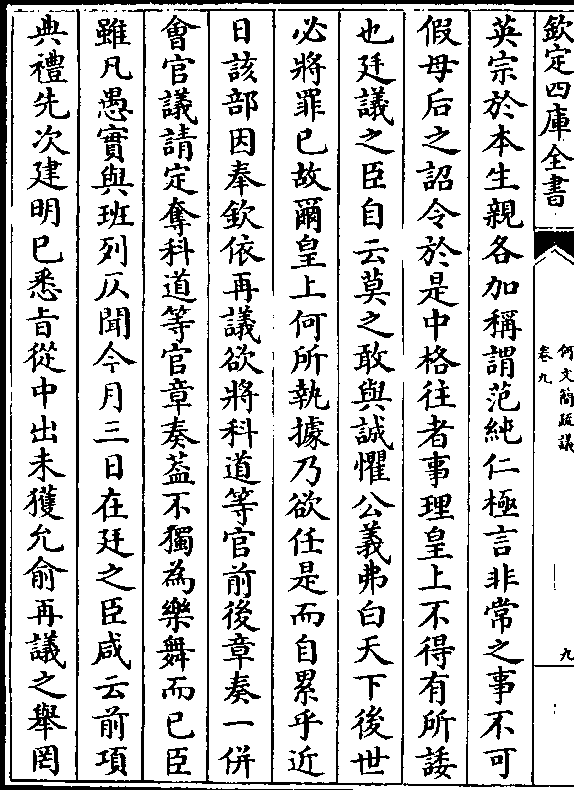 欽定四庫全書
何文簡疏議
卷九
九
英宗於本生親各加稱謂范純仁極言非常之事不可
假母后之詔令於是中格往者事理皇上不得有所諉
也廷議之臣自云莫之敢與誠懼公義弗白天下後世
必將罪已故爾皇上何所執據乃欲任是而自累乎近
日該部因奉欽依再議欲將科道等官前後章奏一併
㑹官議請定奪科道等官章奏葢不獨為樂舞而已臣
雖凡愚實與班列仄聞今月三日在廷之臣咸云前項
典禮先次建明已悉㫖從中出未獲允俞再議之舉罔